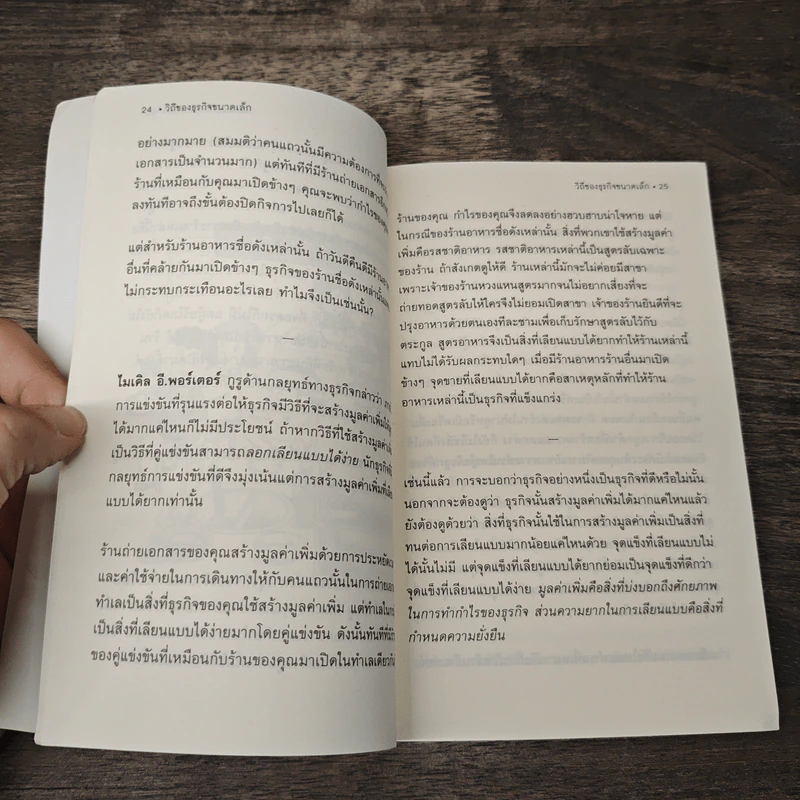 24 • วิถีของธุรกิจขนาดเล็ก
อย่างมากมาย (สมมติว่าคนแถวนั้นมีความต้องการที่
เอกสารเป็นจำนวนมาก) แต่ทันทีที่มีร้านถ่ายเอกสาร
ร้านที่เหมือนกับคุณมาเปิดข้างๆ คุณจะพบว่ากำไรของ
ลงทันทีอาจถึงขั้นต้องปิดกิจการไปเลยก็ได้
แต่สำหรับร้านอาหารชื่อดังเหล่านั้น ถ้าวันดีคืนดีมีร้าน
อื่นที่คล้ายกันมาเปิดข้างๆ ธุรกิจของร้านชื่อดังเหล่านั้น
ไม่กระทบกระเทือนอะไรเลย ทำไมจึงเป็นเช่นนั้น?
—
ไมเคิล อี.พอร์เตอร์ กูรูด้านกลยุทธ์ทางธุรกิจกล่าวว่า
การแข่งขันที่รุนแรงต่อให้ธุรกิจมีวิธีที่จะสร้างมูลค่าเพิ่ม
ได้มากแค่ไหนก็ไม่มีประโยชน์ ถ้าหากวิธีที่ใช้สร้างมูลค่า
เป็นวิธีที่คู่แข่งขันสามารถลอกเลียนแบบได้ง่าย นักธุรกิจ
กลยุทธ์การแข่งขันที่ดีจึงมุ่งเน้นแต่การสร้างมูลค่าเพิ่มที่
แบบได้ยากเท่านั้น
ร้านถ่ายเอกสารของคุณสร้างมูลค่าเพิ่มด้วยการประหยัด
และค่าใช้จ่ายในการเดินทางให้กับคนแถวนั้นในการถ่าย
ทำเลเป็นสิ่งที่ธุรกิจของคุณใช้สร้างมูลค่าเพิ่ม แต่ทำเล
เป็นสิ่งที่เลียนแบบได้ง่ายมากโดยคู่แข่งขัน ดังนั้นทันทีที่
ของคู่แข่งขันที่เหมือนกับร้านของคุณมาเปิดในทำเลเดียว
วิถีของธุรกิจขนาดเล็ก • 25
ร้านของคุณ กำไรของคุณจึงลดลงอย่างฮวบฮาบน่าใจหาย แต่
ในกรณีของร้านอาหารชื่อดังเหล่านั้น สิ่งที่พวกเขาใช้สร้างมูลค่า
เพิ่มคือรสชาติอาหาร รสชาติอาหารเหล่านี้เป็นสูตรลับเฉพาะ
ของร้าน ถ้าสังเกตดูให้ดี ร้านเหล่านี้มักจะไม่ค่อยมีสาขา
เพราะเจ้าของร้านหวงแหนสูตรมากจนไม่อยากเสี่ยงที่จะ
ถ่ายทอดสูตรลับให้ใครจึงไม่ยอมเปิดสาขา เจ้าของร้านยินดีที่จะ
ปรุงอาหารด้วยตนเองทีละชามเพื่อเก็บรักษาสูตรลับไว้กับ
ตระกูล สูตรอาหารจึงเป็นสิ่งที่เลียนแบบได้ยากทำให้ร้านเหล่านี้
แทบไม่ได้รับผลกระทบใดๆ เมื่อมีร้านอาหารร้านอื่นมาเปิด
ข้างๆ จุดขายที่เลียนแบบได้ยากคือสาเหตุหลักที่ทำให้ร้าน
อาหารเหล่านี้เป็นธุรกิจที่แข็งแกร่ง
—
เช่นนี้แล้ว การจะบอกว่าธุรกิจอย่างหนึ่งเป็นธุรกิจที่ดีหรือไม่นั้น
นอกจากจะต้องดูว่า ธุรกิจนั้นสร้างมูลค่าเพิ่มได้มากแค่ไหนแล้ว
ยังต้องดูด้วยว่า สิ่งที่ธุรกิจนั้นใช้ในการสร้างมูลค่าเพิ่มเป็นสิ่งที่
ทนต่อการเลียนแบบมากน้อยแค่ไหนด้วย จุดแข็งที่เลียนแบบไม่
ได้นั้นไม่มี แต่จุดแข็งที่เลียนแบบได้ยากย่อมเป็นจุดแข็งที่ดีกว่า
จุดแข็งที่เลียนแบบได้ง่าย มูลค่าเพิ่มคือสิ่งที่บ่งบอกถึงศักยภาพ
ในการทำกำไรของธุรกิจ ส่วนความยากในการเลียนแบบคือสิ่งที่
กำหนดความยั่งยืน